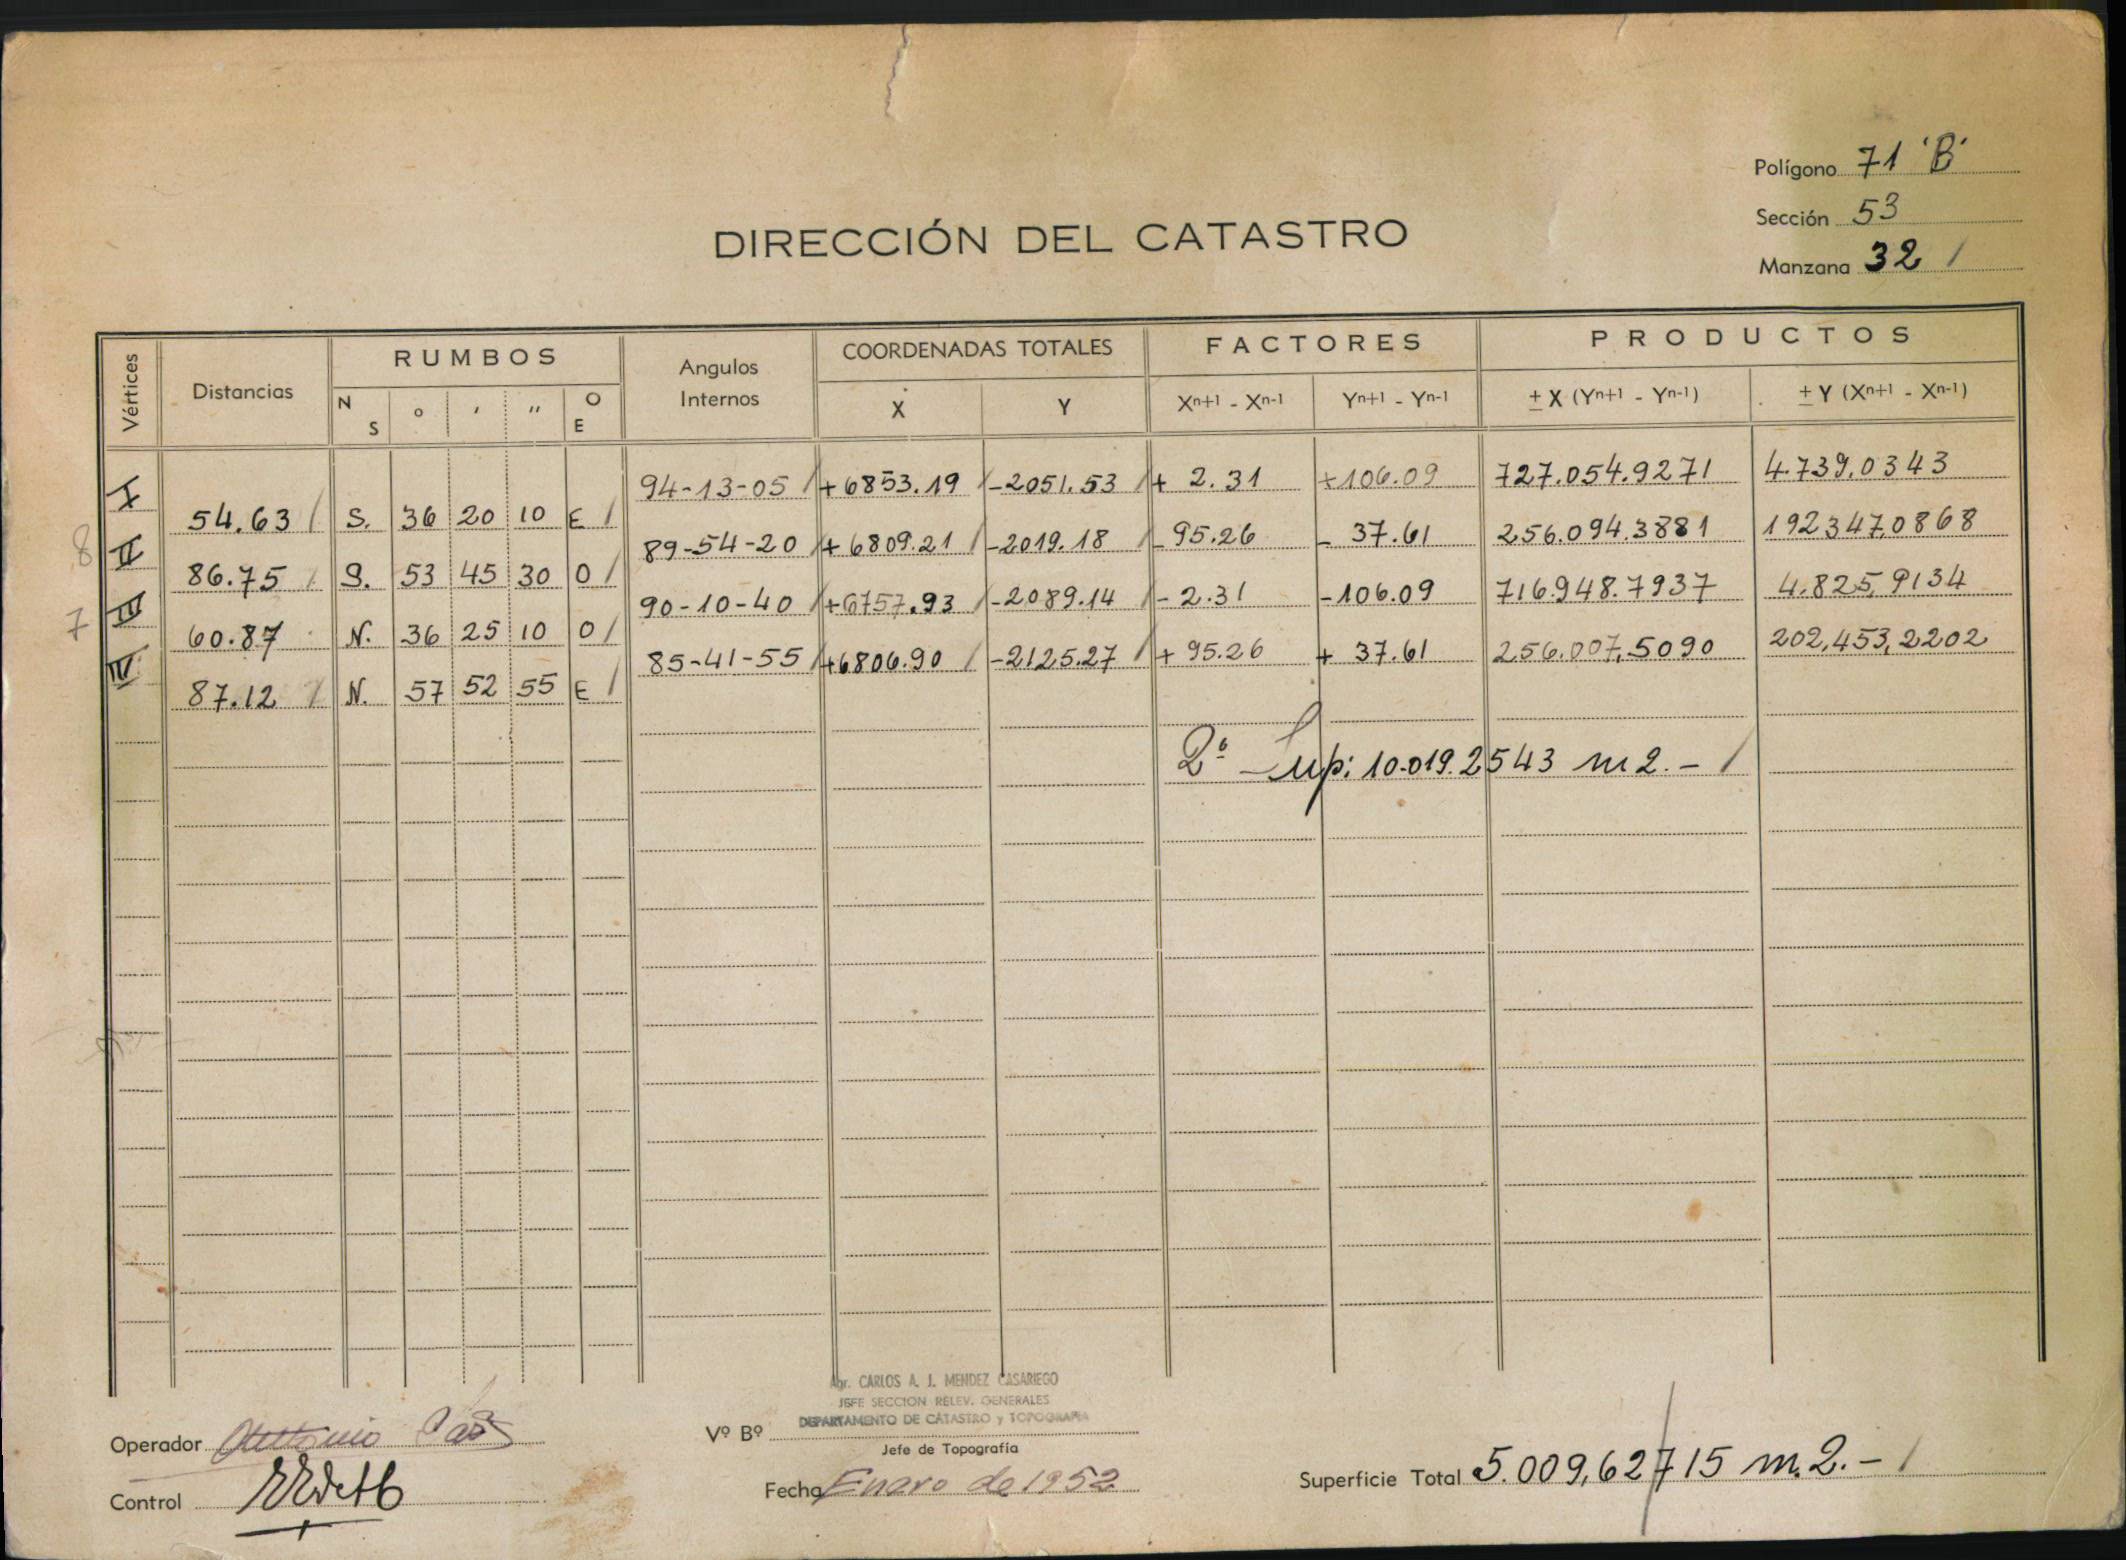 Polígono 71 'B'
Sección 53
DIRECCIÓN DEL CATASTRO
Manzana 32 /
Vértices Distancias RUMBOS Angulos Internos COORDENADAS TOTALES FACTORES PRODUCTOS
N S ° ' '' O E X Y Xn+1 - Xn-1 Yn+1 - Yn-1 ± X (Yn+1 - Yn-1) ± Y (Xn+1 - Xn-1)
I 94-13-05 / +6853.19 / -2051.53 / + 2.31 +106.09 727.054.9271 4.739,0343
54.63 / S. 36 20 10 E /
8 II 89-54-20 / +6809.21 / -2019.18 / -95.26 - 37.61 256.094.3881 192347,0868
86.75 / S. 53 45 30 O /
7 III 90-10-40 / +6757.93 / -2089.14 / -2.31 -106.09 716948.7937 4.825,9134
60.87 N. 36 25 10 O /
IV 85-41-55 / +6806.90 / -2125.27 / + 95.26 + 37.61 256.007,5090 202,453,2202
87.12 / N. 57 52 55 E /
2ª Sup: 10.019.2543 m2.- /
Agr. CARLOS A. J. MENDEZ CASARIEGO
JEFE SECCION RELEV. GENERALES
DEPARTAMENTO DE CATASTRO y TOPOGRAFIA
Operador Antonio
Vº Bº
Jefe de Topografía
Control
Fecha Enero de 1952
Superficie Total 5.009,62715 m.2.- /